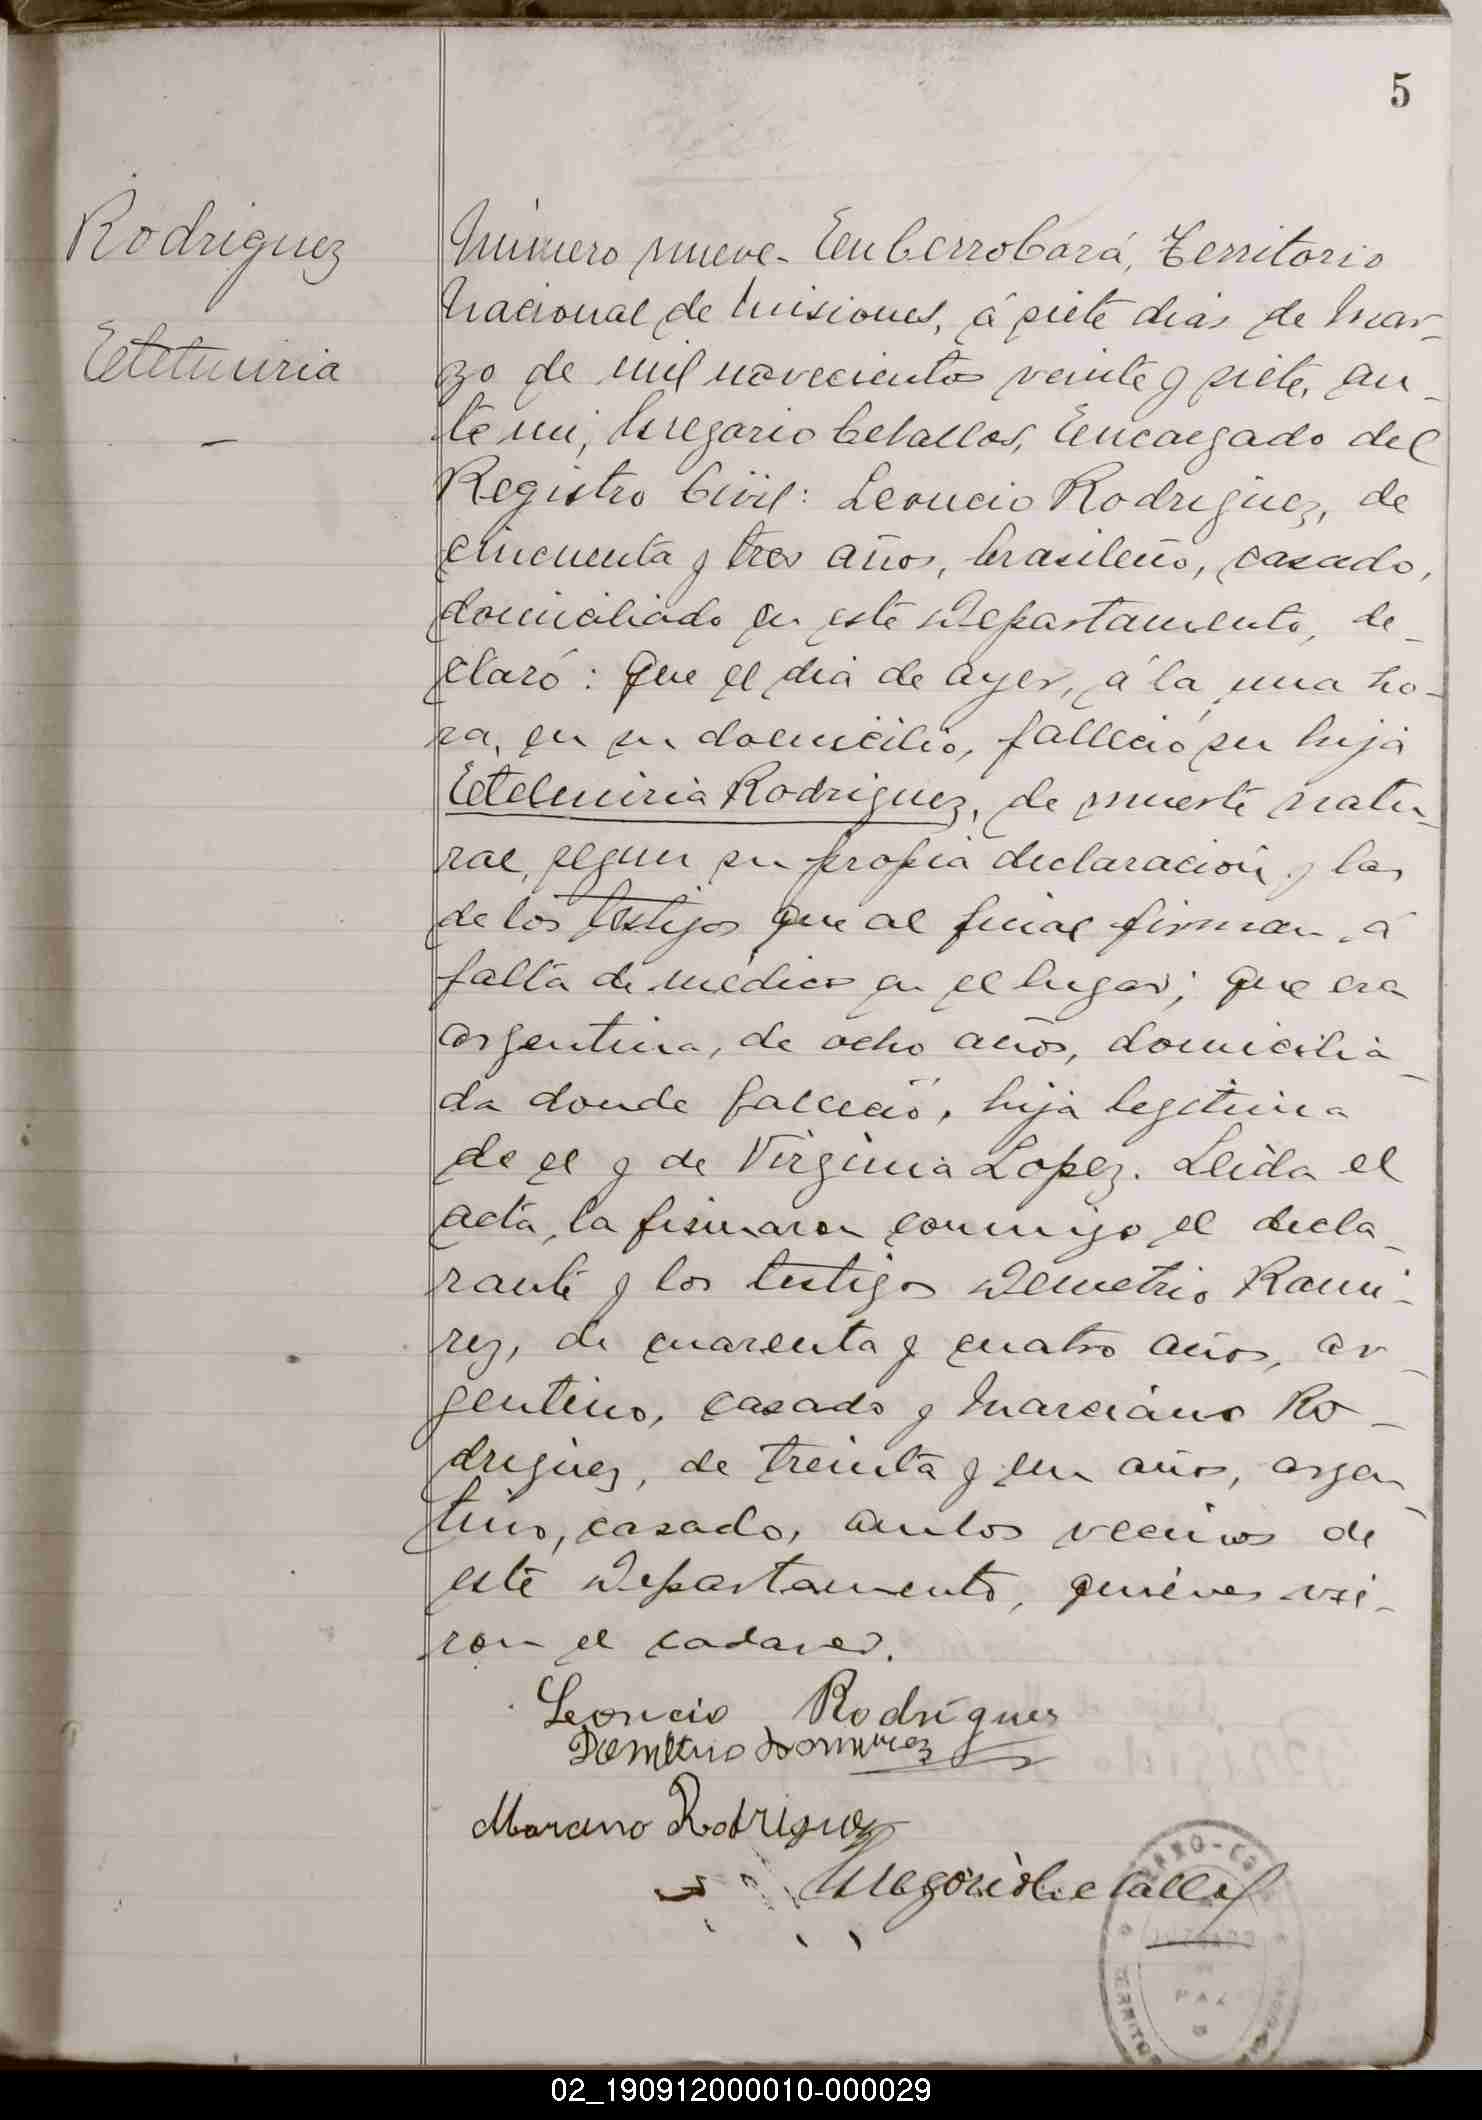 5
Rodriguez
Etelmiria
Número nueve- En Cerro Corá, Territorio
Nacional de Misiones, á siete dias de Mar-
zo de mil novecientos veinte y siete, an-
te mi, Gregorio Ceballos, Encargado del
Registro Civil: Leoncio Rodriguez, de
cincuenta y tres años, brasileño, casado,
domiciliado en este Departamento, de-
claró: que el dia de ayer, á la una ho-
ra, en su domicilio, falleció su hija
Etelmiria Rodriguez, de muerte natu-
ral, segun su propia declaración y las
de los testigos que al final firman, á
falta de médico en el lugar; que era
argentina, de ocho años, domicilia-
da donde falleció, hija legitima
de el y de Virginia Lopez. Leida el
acta, la firmaron conmigo el decla-
rante y los testigos Demetrio Rami-
rez, de cuarenta y cuatro años, ar-
gentino, casado y Marciano Ro-
driguez, de treinta y un años, argen-
tino, casado, ambos vecinos de
este Departamento, quiénes vie-
ron el cadaver.
Leoncio Rodrigues
Demetrio
Marcano Rodriguez
Gregorio Ceballos
CERRO-CO
JUZGADO
DE
PAZ
TERRITO
02_190912000010-000029